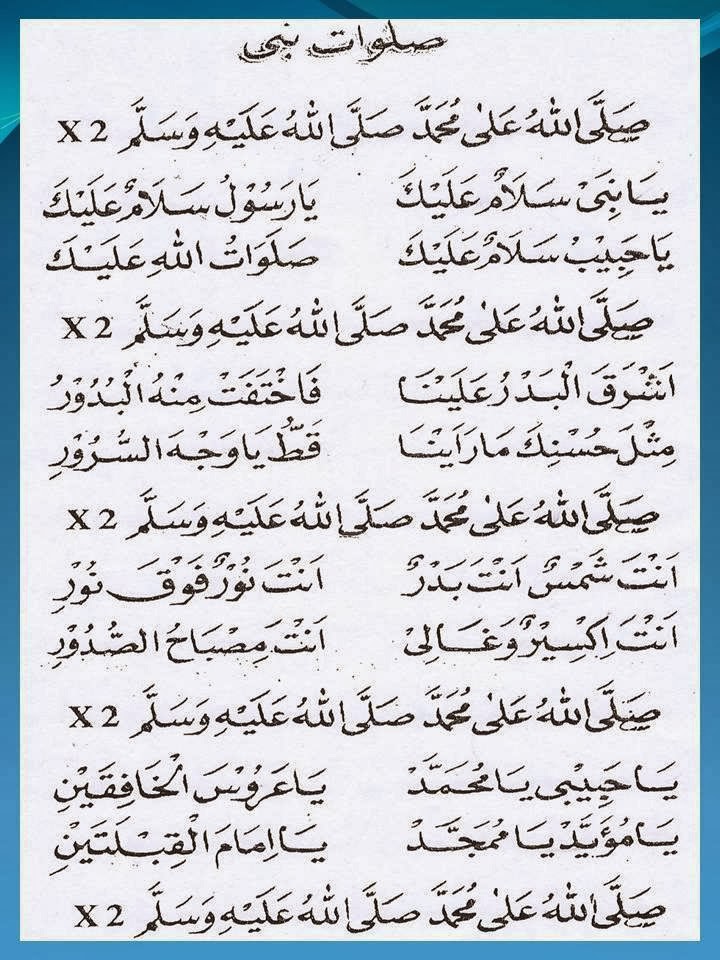 صلوات نبى
صَلَّى اللهُ عَلٰى مُحَمَّدْ صَلَّى اللهُ عَلَيْهِ وَسَلَّمْ X 2
يَا نَبِىْ سَلَامٌ عَلَيْكَ يَا رَسُوْلُ سَلَامٌ عَلَيْكَ
يَا حَبِيْبْ سَلَامٌ عَلَيْكَ صَلَوَاتُ اللهِ عَلَيْكَ
صَلَّى اللهُ عَلٰى مُحَمَّدْ صَلَّى اللهُ عَلَيْهِ وَسَلَّمْ X 2
اَشْرَقَ الْبَدْرُ عَلَيْنَا فَاخْتَفَتْ مِنْهُ الْبُدُوْرُ
مِثْلَ حُسْنِكَ مَارَاَيْنَا قَطُّ يَا وَجْهَ السُّرُوْرِ
صَلَّى اللهُ عَلٰى مُحَمَّدْ صَلَّى اللهُ عَلَيْهِ وَسَلَّمْ X 2
اَنْتَ شَمْسٌ اَنْتَ بَدْرٌ اَنْتَ نُوْرٌ فَوْقَ نُوْرِ
اَنْتَ اِكْسِيْرٌ وَغَالِىْ اَنْتَ مِصْبَاحُ الصُّدُوْرِ
صَلَّى اللهُ عَلٰى مُحَمَّدْ صَلَّى اللهُ عَلَيْهِ وَسَلَّمْ X 2
يَا حَبِيْبِى يَا مُحَمَّدْ يَا عَرُوْسَ الْخَافِقَيْنِ
يَا مُؤَيَّدْ يَا مُمَجَّدْ يَا اِمَامَ الْقِبْلَتَيْنِ
صَلَّى اللهُ عَلٰى مُحَمَّدْ صَلَّى اللهُ عَلَيْهِ وَسَلَّمْ X 2